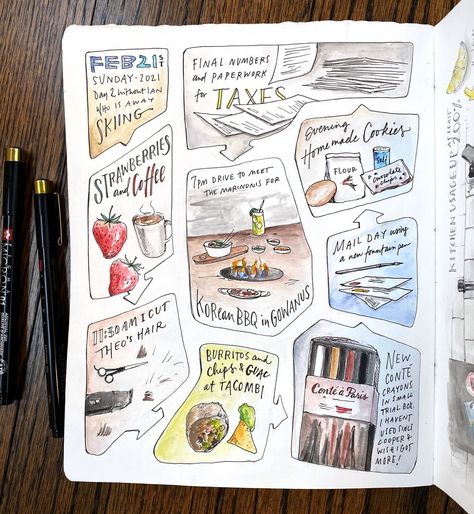 FEB 21ST
SUNDAY - 2021
Day 2 without Ian
who is away
SKIING
STRAWBERRIES
and Coffee
11:30AM I CUT
THEO'S HAIR
BURRITOS and
CHIPS & GUAC
at TACOMBI
7PM DRIVE TO MEET
THE MARINONIS FOR
KOREAN BBQ in GOWANUS
FINAL NUMBERS
and PAPERWORK
for TAXES
evening
Homemade Cookies
FLOUR
Salt
chocolate
chips
MAIL DAY using
a new fountain pen
Conté à Paris
NEW
CONTÉ
CRAYONS
IN SMALL
TRIAL BOX.
I HAVEN'T
USED SINCE
COOPER &
WISH I GOT
MORE!
KITCHEN USAGE UP 200%